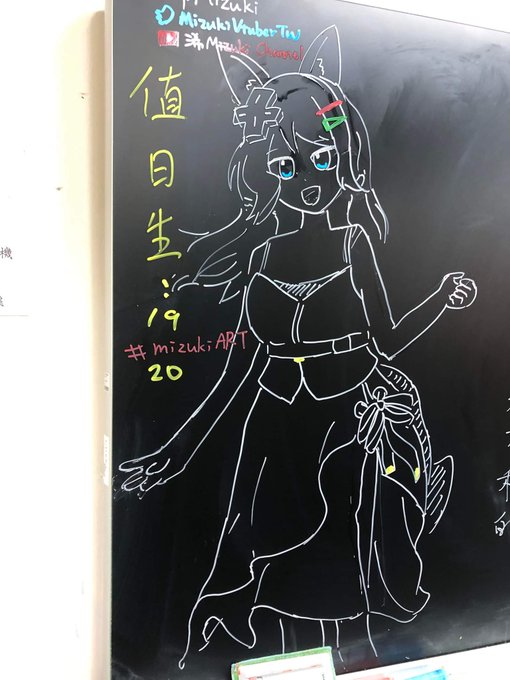 Mizuki
MizukiVtuberTw
Mizuki Channel
值日生:
19
#mizukiART
20
機